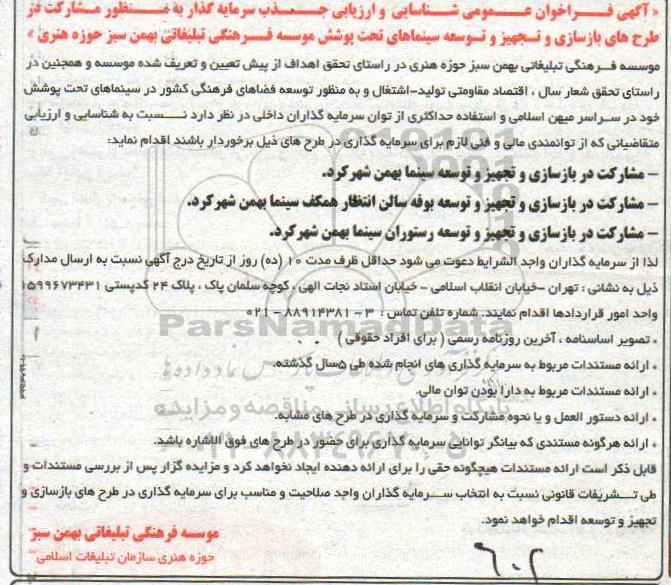 « آگهی فراخوان عمومی شناسایی و ارزیابی جذب سرمایه گذار به منظور مشارکت در
طرح های بازسازی و تجهیز و توسعه سینماهای تحت پوشش موسسه فرهنگی تبلیغاتی بهمن سبز حوزه هنری »
موسسه فرهنگی تبلیغاتی بهمن سبز حوزه هنری در راستای تحقق اهداف از پیش تعیین و تعریف شده موسسه و همچنین در
راستای تحقق شعار سال ، اقتصاد مقاومتی تولید-اشتغال و به منظور توسعه فضاهای فرهنگی کشور در سینماهای تحت پوشش
خود در سراسر میهن اسلامی و استفاده حداکثری از توان سرمایه گذاران داخلی در نظر دارد نسبت به شناسایی و ارزیابی
متقاضیانی که از توانمندی مالی و فنی لازم برای سرمایه گذاری در طرح های ذیل برخوردار باشند اقدام نماید:
– مشارکت در بازسازی و تجهیز و توسعه سینما بهمن شهرکرد.
– مشارکت در بازسازی و تجهیز و توسعه بوفه سالن انتظار همکف سینما بهمن شهرکرد.
– مشارکت در بازسازی و تجهیز و توسعه رستوران سینما بهمن شهرکرد.
لذا از سرمایه گذاران واجد الشرایط دعوت می شود حداقل ظرف مدت ۱۰ (ده) روز از تاریخ درج آگهی نسبت به ارسال مدارک
ذیل به نشانی : تهران -خیابان انقلاب اسلامی - خیابان استاد نجات الهی ، کوچه سلمان پاک ، پلاک ۲۴ کدپستی ۱۵۹۹۶۷۳۴۳۱
واحد امور قراردادها اقدام نمایند. شماره تلفن تماس : ۳ - ۸۸۹۱۴۳۸۱ - ۰۲۱
• تصویر اساسنامه ، آخرین روزنامه رسمی ( برای افراد حقوقی )
• ارائه مستندات مربوط به سرمایه گذاری های انجام شده طی ۵سال گذشته.
• ارائه مستندات مربوط به دارا بودن توان مالی.
• ارائه دستور العمل و یا نحوه مشارکت و سرمایه گذاری در طرح های مشابه.
• ارائه هرگونه مستندی که بیانگر توانایی سرمایه گذاری برای حضور در طرح های فوق الاشاره باشد.
قابل ذکر است ارائه مستندات هیچگونه حقی را برای ارائه دهنده ایجاد نخواهد کرد و مزایده گزار پس از بررسی مستندات و
طی تشریفات قانونی نسبت به انتخاب سرمایه گذاران واجد صلاحیت و مناسب برای سرمایه گذاری در طرح های بازسازی و
تجهیز و توسعه اقدام خواهد نمود.
موسسه فرهنگی تبلیغاتی بهمن سبز
حوزه هنری سازمان تبلیغات اسلامی
۶۰۲
ParsNamadData
پایگاه اطلاع رسانی مناقصه و مزایده
۰۲۱-۸۸۳۴۹۶۷۰-۵